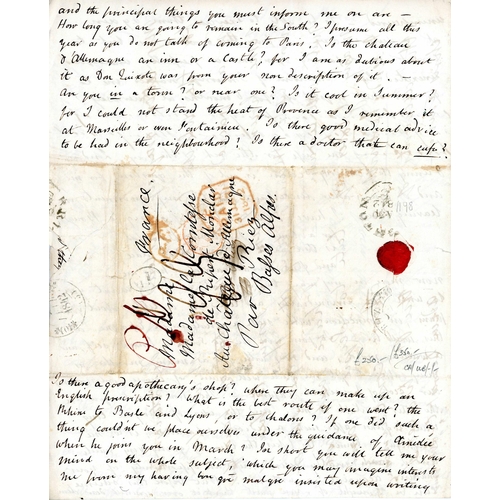 and the principal things you must inform me on are —
How long you are going to remain in the South? I presume all this
year as you do not talk of coming to Paris. Is the chateau
d'Allemagne an inn or a Castle? for I am as dubious about
it as Don Quixote was from your non description of it. —
Are you in a town? or near one? Is it cool in Summer?
for I could not stand the heat of Provence as I remember it
at Marseilles or even Fontainieu. Is there good medical advice
to be had in the neighbourhood? Is there a doctor that can cupp?
France.
Madame
Madame la Comtesse
de Ripert Monclar
Au Chateau d'Allemagne
Riez
Par Basses Alpes.
£350.-
Is there a good apothecary's shop? where they can make up an
English prescription? What is the best route if one went? the
Rhine to Basle and Lyons, or to Chalons? If one did such a
thing could'nt we place ourselves under the guidance of Amédée
when he joins you in March? In short you will tell me your
mind on the whole subject, which you may imagine interests
me from my having bon gré malgré insisted upon writing